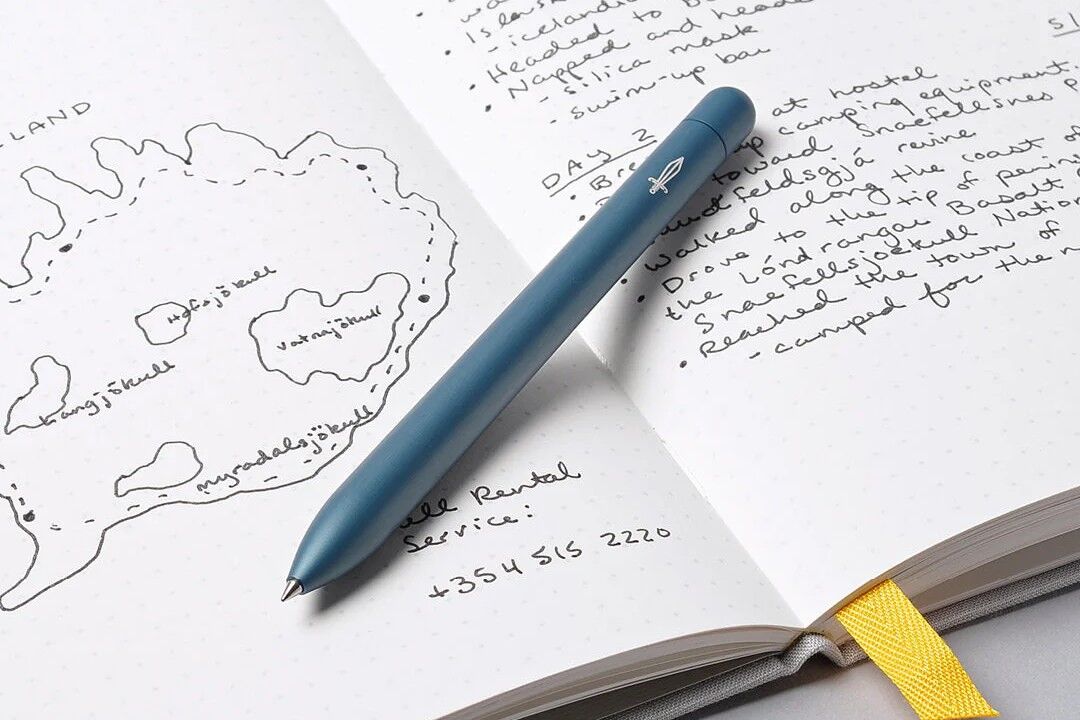 LAND
Hofsjökull
Vatnajökull
Langjökull
myrdalsjökull
Cell Rental
Service:
+354 515 2220
- icelandic
• Headed to
• Napped and heade
- silica mask
- swim-up bar
DAY 2
at hostel
up camping equipment.
toward Snaefellsnes P
feldsgjá revine
• Walked along the coast of
• Drove to the tip of penins
the Lóndrangar Basalt
Snaefellsjoekull Nation
• Reached the town of
- camped for the n